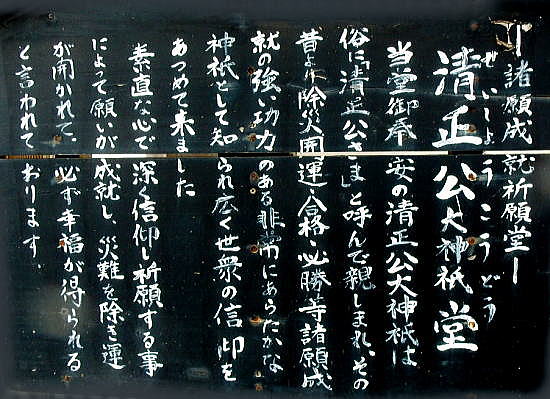 ―諸願成就祈願堂―
せいしょうこうどう
清正公大神祇堂
当堂御奉安の清正公大神祇は
俗に「清正公さま」と呼んで親しまれ、その
昔より除災開運、合格・必勝等諸願成
就の強い功力のある非常にあらたかな
神祇として知られ広く世衆の信仰を
あつめて来ました
素直な心で深く信仰し祈願する事
によって願いが成就し、災難を除き運
が開かれて、必ず幸福が得られる
と言われております。